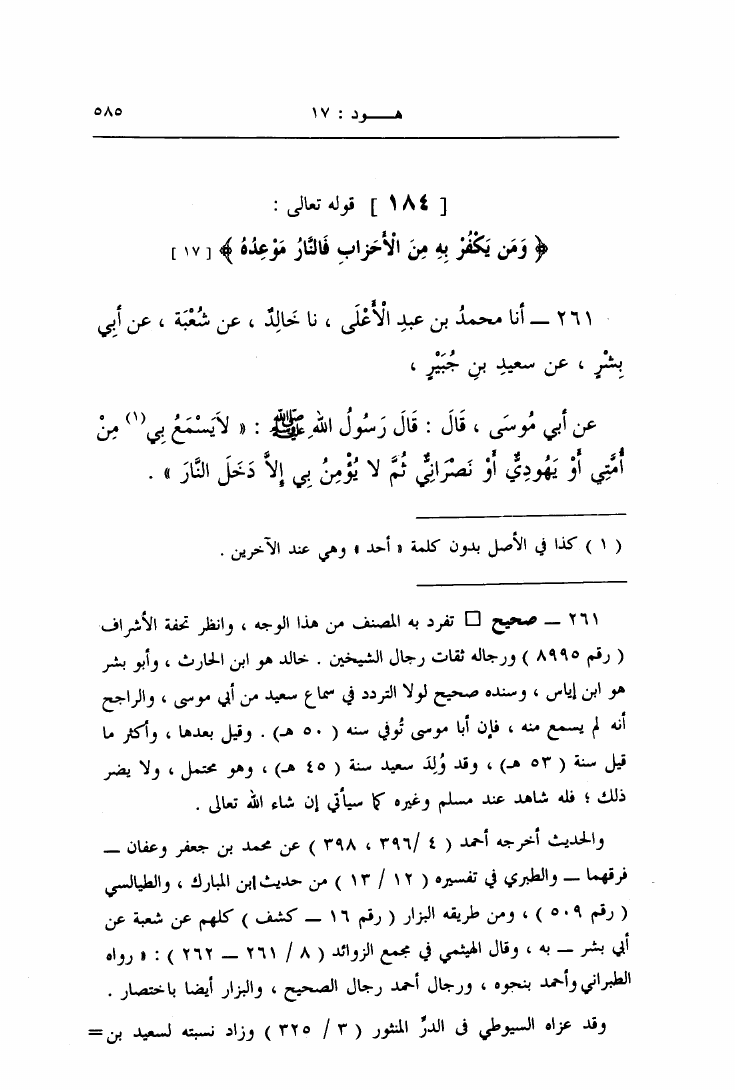 هــود : ١٧ ٥٨٥
[ ١٨٤ ] قوله تعالى :
﴿ وَمَن يَكْفُرْ بِهِ مِنَ الْأَحْزَابِ فَالنَّارُ مَوْعِدُهُ ﴾ [ ١٧ ]
٢٦١ ــ أنا محمدُ بن عبدِ الْأَعْلَى ، نا خَالِدٌ ، عن شُعْبَة ، عن أبِي
بِشْرٍ ، عن سعيدِ بنِ جُبَيْرٍ ،
عن أبي مُوسَى ، قَالَ : قَالَ رَسُولُ اللهِ ﷺ : « لاَيَسْمَعُ بِي(١) مِنْ
أُمَّتِي أَوْ يَهُودِيٌّ أَوْ نَصْرَانِيٌّ ثُمَّ لا يُؤْمِنُ بِي إِلاَّ دَخَلَ النَّارَ » .
( ١ ) كذا في الأصل بدون كلمة « أحد » وهي عند الآخرين .
٢٦١ ــ صحيح □ تفرد به المصنف من هذا الوجه ، وانظر تحفة الأشراف
( رقم ٨٩٩٥ ) ورجاله ثقات رجال الشيخين . خالد هو ابن الحارث ، وأبو بشر
هو ابن إياس ، وسنده صحيح لولا التردد في سماع سعيد من أبي موسى ، والراجح
أنه لم يسمع منه ، فإن أبا موسى تُوفي سنه ( ٥٠ هـ) . وقيل بعدها ، وأكثر ما
قيل سنة ( ٥٣ هـ) ، وقد وُلِدَ سعيد سنة ( ٤٥ هـ) ، وهو محتمل ، ولا يضر
ذلك ؛ فله شاهد عند مسلم وغيره كما سيأتي إن شاء الله تعالى .
والحديث أخرجه أحمد ( ٤ /٣٩٦ ، ٣٩٨ ) عن محمد بن جعفر وعفان ــ
فرقهما ــ والطبري في تفسيره ( ١٢ / ١٣ ) من حديث ابن المبارك ، والطيالسي
( رقم ٥٠٩ ) ، ومن طريقه البزار ( رقم ١٦ ــ كشف ) كلهم عن شعبة عن
أبي بشر ــ به ، وقال الهيثمي في مجمع الزوائد ( ٨ / ٢٦١ ــ ٢٦٢ ) : « رواه
الطبراني وأحمد بنحوه ، ورجال أحمد رجال الصحيح ، والبزار أيضا باختصار .
وقد عزاه السيوطي فى الدرِّ المنثور ( ٣ / ٣٢٥ ) وزاد نسبته لسعيد بن =